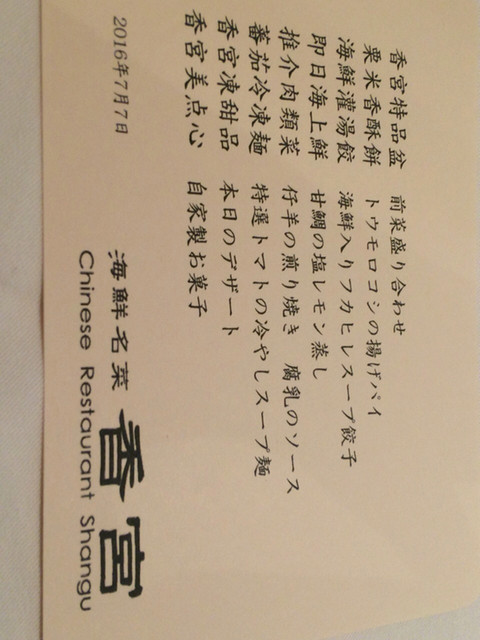 香宮特品盆　前菜盛り合わせ
栗米香酥餅　トウモロコシの揚げパイ
海鮮灌湯餃　海鮮入りフカヒレスープ餃子
即日海上鮮　甘鯛の塩レモン蒸し
推介肉類菜　仔羊の煎り焼き　腐乳のソース
蕃茄冷凍麺　特選トマトの冷やしスープ麺
香宮凍甜品　本日のデザート
香宮美点心　自家製お菓子
2016年7月7日
海鮮名菜 香宮
Chinese Restaurant Shangu